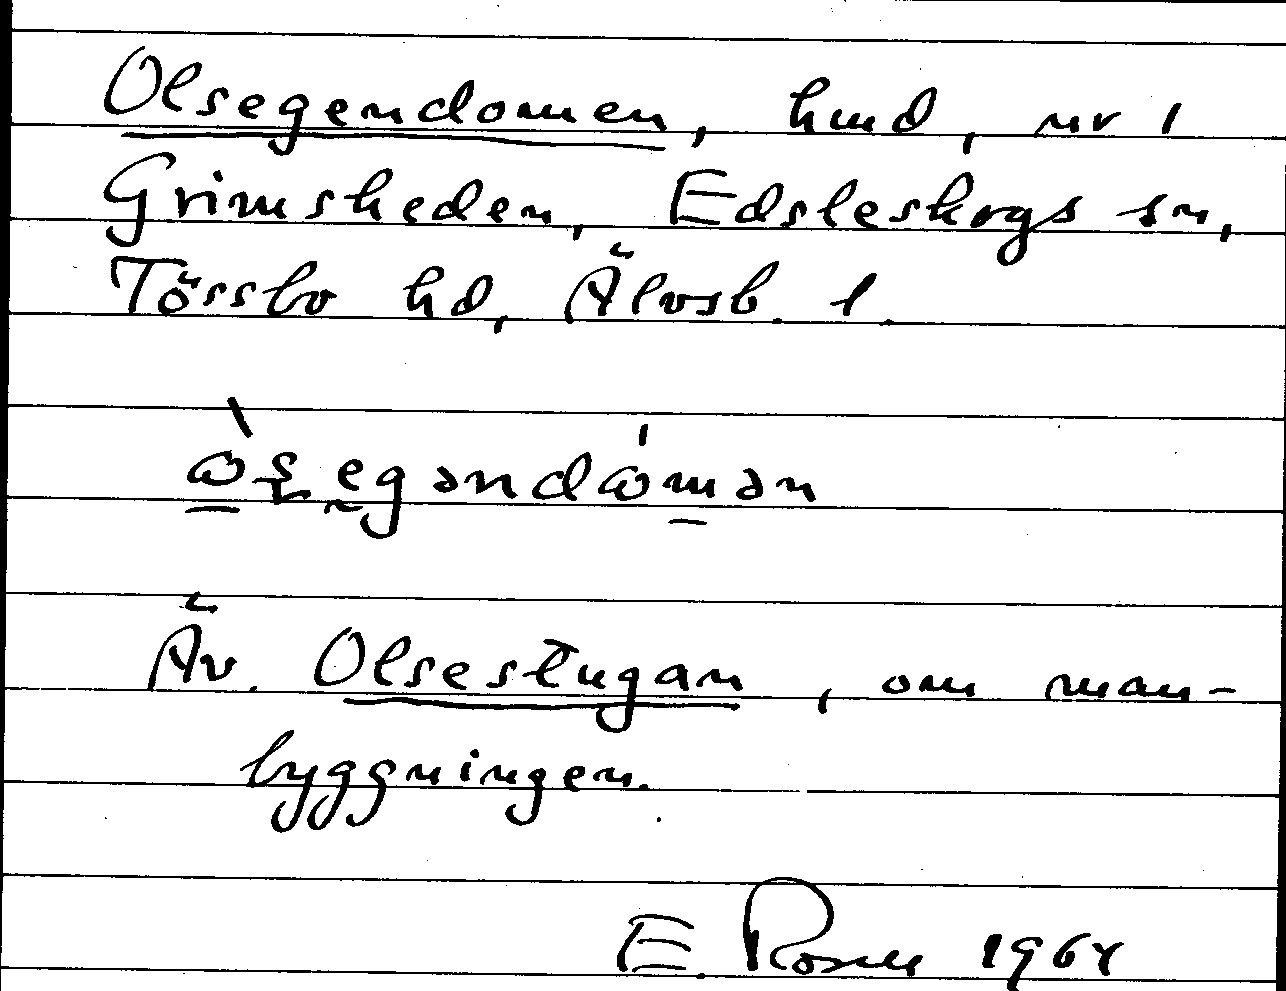 Olsegendomen, hmd, nr 1
Grimsheden, Edsleskogs sn,
Tössbo hd, Älvsb. l.
Äv. Olsestugan, om man-
byggningen.
E. Rosen 1964